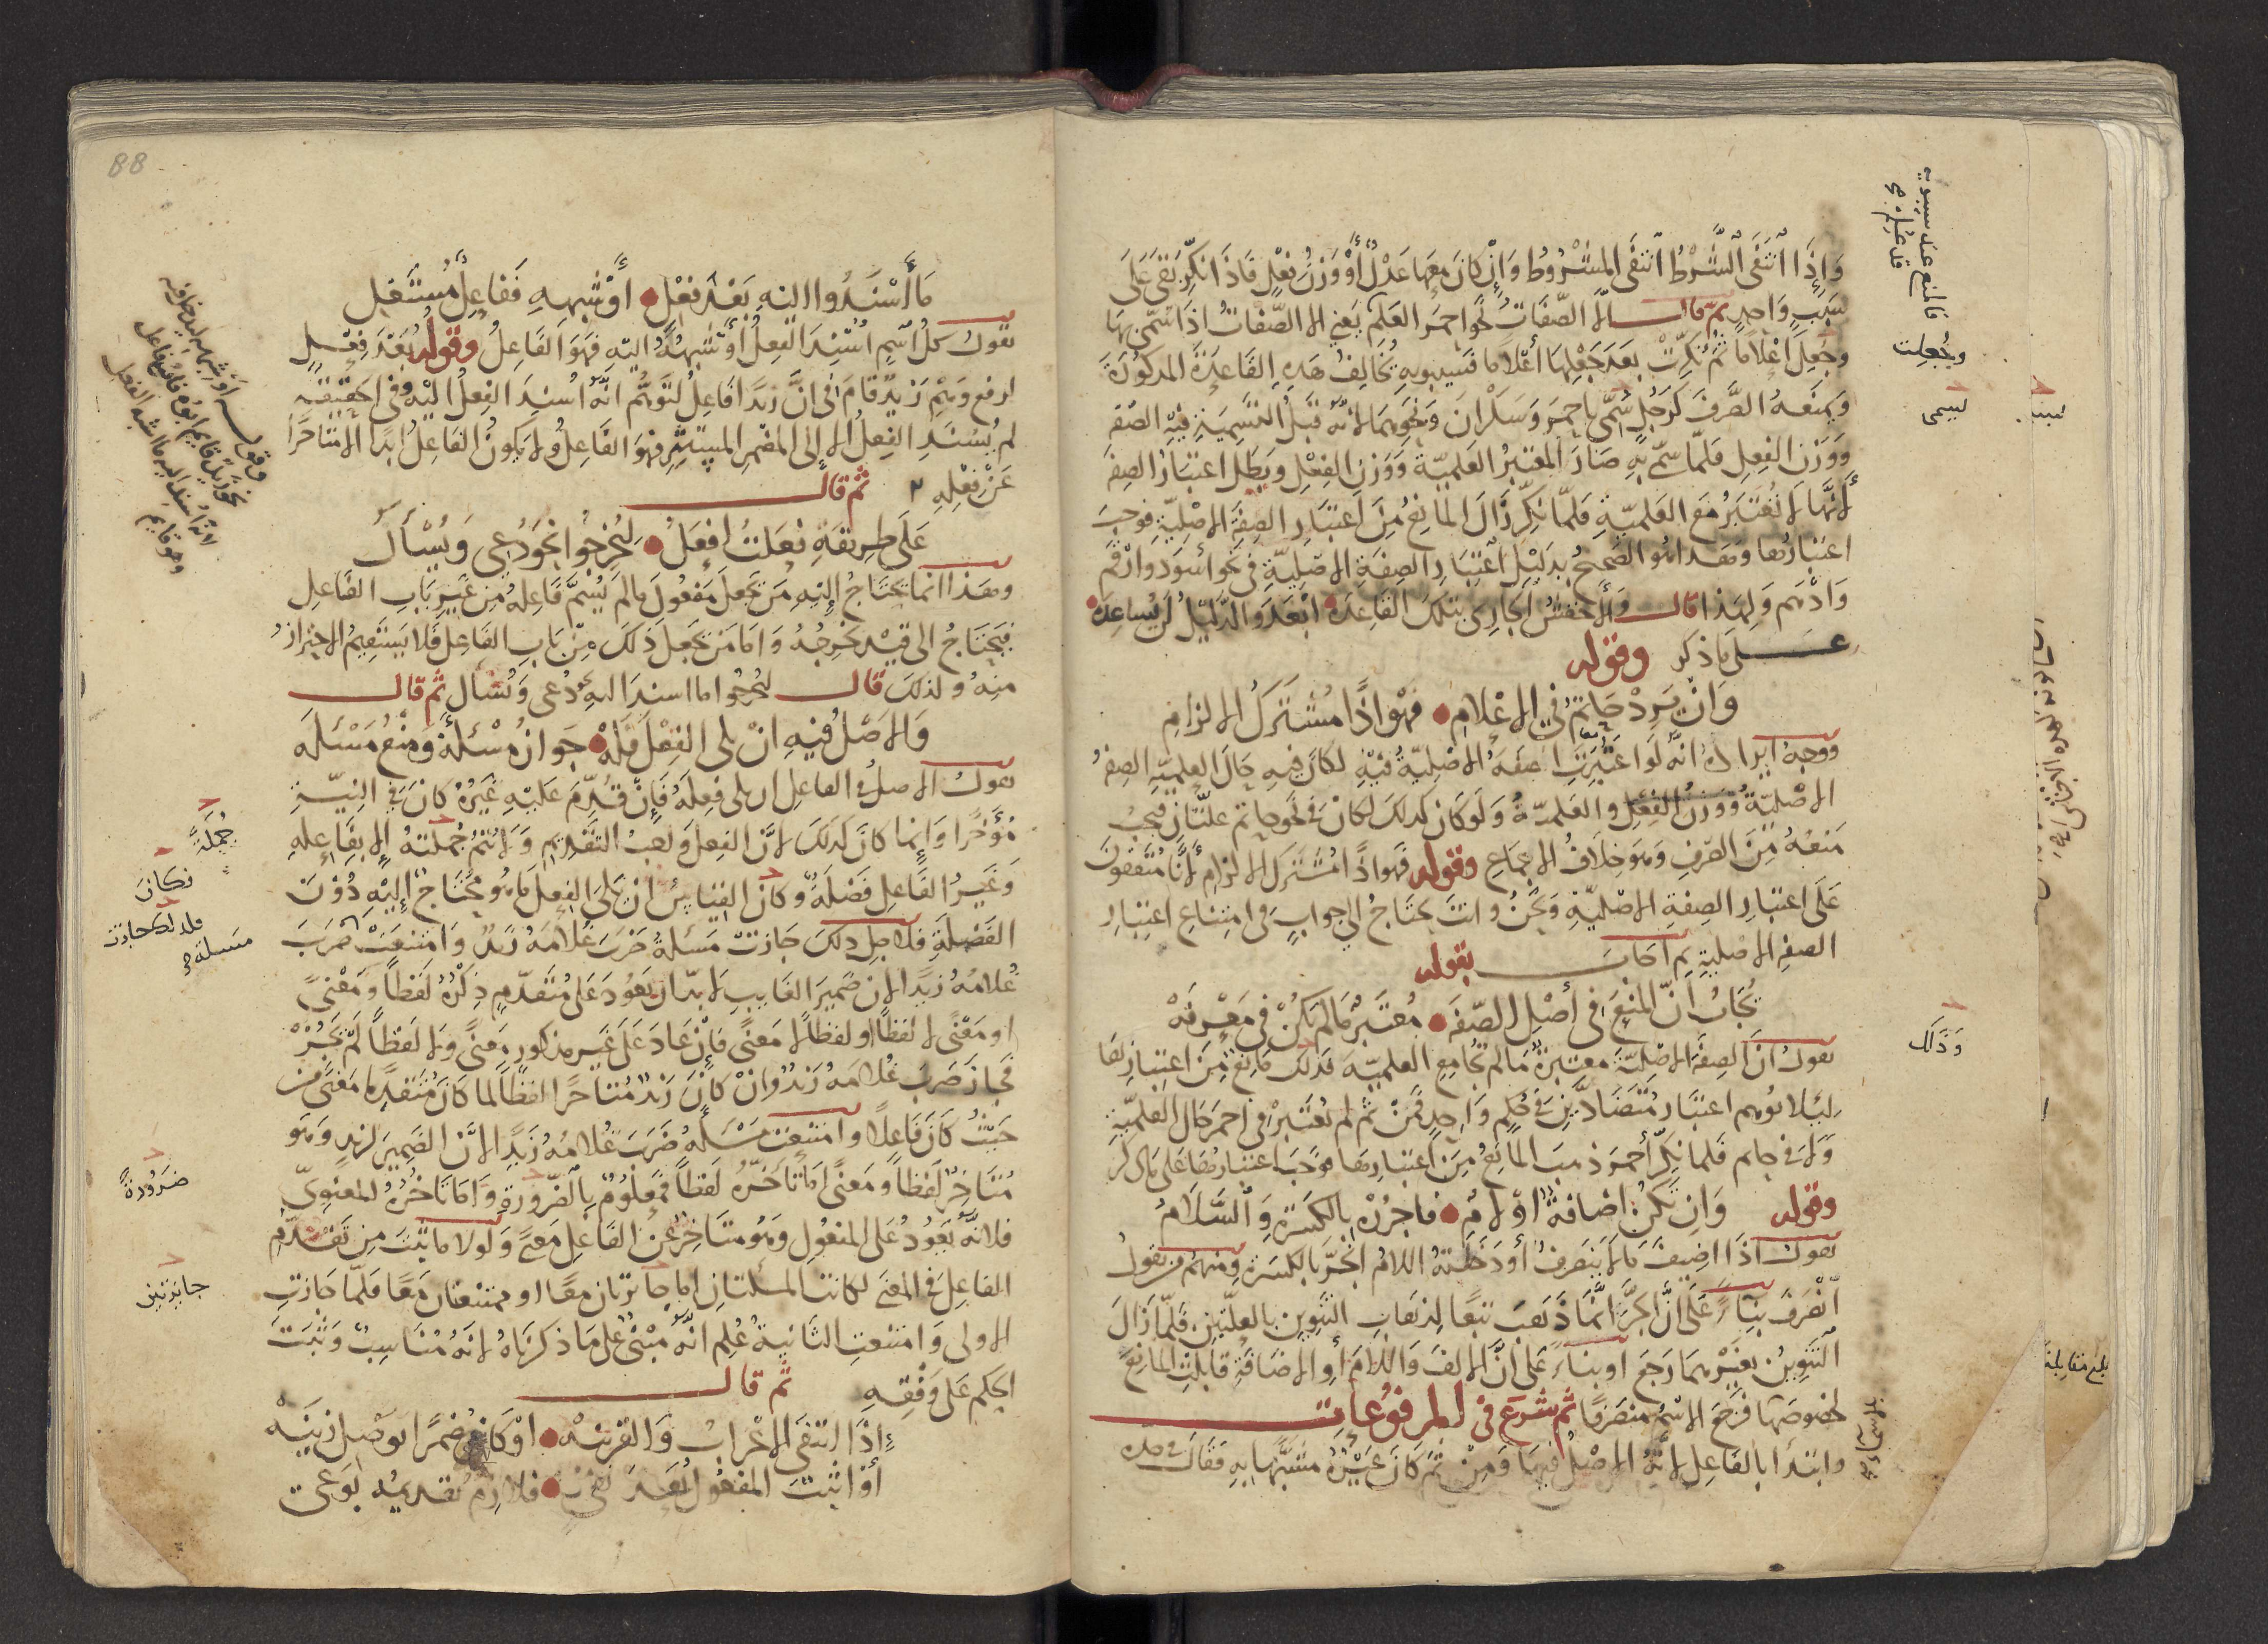 وَإِذَا انْتَفَى الشَّرْطُ انْتَفَى المَشْرُوطُ وَإِنْ كَانَ مَعَهَا عَدْلٌ أَوْ وَزْنُ فِعْلٍ فَإِذَا نُكِّرَ بَقِيَ عَلَى
سَبَبٍ وَاحِدٍ ثم قال إلا الصِّفَاتُ نَحْوُ أحمر العَلَمِ يَعْنِي إلا الصِّفَاتُ إذَا سُمِّيَ بِهَا
وجُعِلَ أعْلَامًا ثُمَّ نُكِّرَتْ بَعْدَ جَعْلِهَا أعْلَامًا فسيبويه يُخَالِفُ هَذِهِ القَاعِدَةَ المذكُورَةَ
وَيَمْنَعُهُ الصَّرْفَ كَرَجُلٍ سُمِّيَ بِأحمَرَ وَسَكْرَانَ وَنَحْوِهِمَا لأنه قَبْلَ التَّسْمِيَةِ فيه الصفة
وَوَزْنُ الفِعْلِ فَلَمَّا سُمِّيَ بِهِ صَارَ المُعْتَبَرُ العَلَمِيَّةَ وَوَزْنَ الفِعْلِ وَبَطَلَ اعْتِبَارُ الصفة
لأنَّهَا لا تُعْتَبَرُ مَعَ العَلَمِيَّةِ فَلَمَّا نُكِّرَ زَالَ المَانِعُ مِنَ اعْتِبَارِ الصِّفَةِ الأصْلِيَّةِ فوجب
اعْتِبَارُهَا وهَذا هُوَ الصَّحِيحُ بِدَلِيلِ اعْتِبَارِ الصِّفَةِ الأصْلِيَّةِ في نَحْوِ أسْوَدَ وأرْقَمَ
وَأدْهَمَ وَلِهَذَا قال وَالأخْفَشُ الجَارِي بِتِلْكَ القَاعِدَه أبْعَدَ وَالدَّلِيلُ لَنْ يُسَاعِدَه
على مَا ذكر وقوله
وَإنْ يَرِدْ حَاتَمٌ في الأعْلَامِ فَهْوَ إذًا مُشْتَرَكُ الإلزام
ووجه ايراده أنه لَوِ اعْتُبِرَتِ الصفَةُ الأصْلِيَّةُ فيه لكانَ فيهِ حَالَ العلمية الصفة
الأصْلِيَّةُ وَوَزْنُ الفِعْلِ والعَلَمِيَّةُ وَلَوْ كانَ كذلك لكانَ في نَحْوِ حاتم علَّتَانِ فيجب
مَنْعُهُ مِنَ الصَّرْفِ وَهُوَ خِلَافُ الإجماعِ وقوله فهو إذًا مُشْتَرَكُ الإلزامِ لأنَّا مُتَّفِقُونَ
عَلَى اعْتِبَارِ الصِّفَةِ الأصْلِيَّةِ ونحْنُ وأنتَ نحتَاجُ إلى جوابٍ في امتِنَاعِ اعتبَارِ
الصفة الأصلية ثم أجاب بقوله
يُجَابُ أنَّ المَنْعَ في أصْلِ الصِّفَه مُعْتَبَرٌ مَا لَمْ يَكُنْ في مَعْرِفَهْ
يقول إنَّ الصِّفَةَ الأصْلِيَّةَ معتبرةٌ مَا لم تجامع العلميةَ فذلك مَانِعٌ مِنَ اعْتِبَارِهَا
لِئَلا يُوهِم اعْتِبَارَ مُتَضَادَّيْنِ في حُكْمٍ وَاحِدٍ فَمِنْ ثَمَّ لم تُعْتَبَرْ في أحمرَ حَالَ العَلَمِيَّةِ
وَلا في حاتم فَلَمَّا نُكِّرَ أحمَرُ ذهبَ المَانِعُ مِنَ اعْتِبَارِهَا فوجَبَ اعتبَارُهَا عَلَى مَا ذكر
وقوله وَإنْ تَكُنْ إضَافَةٌ أوْ لامُ فاجْرُرْهُ بالكَسْرَةِ وَالسَّلَامُ
يقول إذَا أضِيفَ مَا لا يَنْصَرِفُ أوْ دَخَلَتْهُ اللامُ انجَرَّ بالكسرة ومنهم من يقول
انْصَرَفَ بِنَاءً عَلَى أنَّ الجَرَّ إنَّمَا ذَهَبَ تبعًا لِذهَابِ التَّنْوِينِ بالعِلَّتَيْنِ فَلَمَّا زَالَ
التَّنْوِينُ بغَيْرِهِمَا رَجَعَ أو بِناءً عَلى أنَّ الألفَ وَاللامَ أوِ الإضَافَةَ قَابَلَتِ المَانِعَ
لخصُوصِهَا فَرَجَعَ الاسْمُ منصَرِفًا ثم شَرَعَ في المرفُوعَاتِ
وابتَدَأَ بالفَاعِلِ لأنَّهُ الأصْلُ فيهَا وَمِنْ ثَمَّ كانَ غَيْرُهُ مُشَبَّهًا بِهِ فَقَالَ في حده
فالمنع عند سيبويه
قد علم صح
وجُعِلت
ليسمى
وَذَلِكَ
بلغ مقابلة
88
مَا أسْنَدُوا إليه بَعْدَ فِعْلِ أوْ شِبْهِهِ فَفَاعِلٌ مُسْتَقِلِ
يقول كلُّ اسْمٍ أُسْنِدَ الفِعْلُ أوْ شِبْهُهُ إليْهِ فهوَ الفَاعِلُ وقوله بَعْدَ فِعْلٍ
لم يُسْنَدِ الفِعْلُ إلا إلى المُضْمَرِ المُسْتَتِرِ فهوَ الفَاعِلُ وَلا يَكُونُ الفَاعِلُ أبَدًا إلا مُتَأخِّرًا
عَنْ فِعْلِهِ ثم قال
عَلَى طَرِيقَةِ فَعَلْتُ أفْعَلُ لِيُخْرِجُوا نَحْوَ دُعِي وَيُسْألُ
وهَذا إنما يَحتَاجُ إليهِ مَن يَجْعَلُ مَفْعُولَ مَا لَمْ يُسَمَّ فَاعِلُهُ مِنْ غَيْرِ بَابِ الفَاعِلِ
فيَحْتَاجُ إلى قَيْدٍ يُخرِجُهُ وَأمَّا مَنْ يَجعَلُ ذَلِكَ مِنْ بَابِ الفَاعِلِ فَلا يَسْتَقِيمُ الاحتِرَازُ
مِنْهُ ولذلك قال ليُخرِجُوا ما أُسنِدَ إليه دُعِي وَيُسْأل ثم قال
وَالأصْلُ فيهِ أنْ يلي الفِعْلَ فَلَهْ جَوَازُ مَسْئَلَةٍ وَمَنْعُ مَسْئَلَه
يقول الأصلُ في الفاعِلِ أن يلي فِعْلَهُ فَإنْ قُدِّمَ عَلَيْهِ غَيْرُهُ كانَ في النِّيَّةِ
مُؤَخَّرًا وَإنما كانَ كذلك لأنَّ الفِعلَ وَاجِبُ التَّقْدِيمِ وَلا تَتِمُّ جُملَتُهُ إلا بِفَاعِلِهِ
وَغَيْرُ الفَاعِلِ فَضْلَةٌ وَكَانَ القِيَاسُ أنْ يَلِيَ الفِعْلَ مَا هُوَ مُحْتَاجٌ إليْهِ دُونَ
الفَضْلَةِ فلأجلِ ذلك جَازَتْ مَسْئلةُ ضَرَبَ غُلامَهُ زَيدٌ وَامتَنَعَتْ ضَرَبَ
غُلامُهُ زَيدًا لأن ضَمِيرَ الغَايِبِ لا بدَّ أن يَعُودَ عَلى مُتَقَدِّمٍ ذِكْرُهُ لَفْظًا وَمَعْنًى
أو مَعْنًى لا لَفْظًا أو لفظًا لا مَعنًى فَإنْ عَادَ عَلَى غَيْرِ مَذكورٍ مَعْنًى وَلا لَفْظًا لَمْ يَجُزْ
فَجَازَ ضَرَبَ غُلامَهُ زَيدٌ وَإنْ كانَ زَيدٌ مُتأخِّرًا لفظًا لما كَانَ مُتَقَدِّمًا مَعْنًى مِنْ
حَيْثُ كَانَ فَاعِلًا وامتنعت مَسْئَلَةُ ضَرَبَ غُلامُهُ زَيْدًا لأنَّ الضَّمِيرَ لزيدٍ وَهُوَ
مُتَأخِّرٌ لَفْظًا ومَعنًى أمَّا تَأخُّرُهُ لَفْظًا فَمَعْلُومٌ بِالضَّرُورَةِ وَأمَّا تَأخُّرُهُ المَعنَوِيّ
فلأنَّهُ يَعُودُ عَلى المفعُولِ وَهُوَ متأخِّرٌ عَنِ الفَاعِلِ مَعنًى وَلَولا مَا ثَبَتَ مِن تَقَدُّمِ
الفَاعِلِ في المَعْنَى لكانت المسئلتانِ إمَّا جائزتَانِ مَعًا أو ممتَنِعتَانِ مَعًا فَلَمَّا جَازَتِ
الأولى وَامتَنَعَتِ الثَّانِيَةُ عُلِمَ أنَّهُ مَبْنيٌّ عَلى مَا ذكَرْنَاهُ لأنَّهُ مُنَاسِبٌ وَثَبَتَ
الحكم عَلَى وَفْقِهِ ثم قال
إذَا انتَفَى الإعْرَابُ وَالقَرِينَهْ أوْ كَانَ مُضْمَرًا
أوْ أثْبَتَ المفعُولُ بَعْدَ نفي فلازِمٌ تقديمُه
جُمْلَةً
فكانَ
فلذلك جازت
مسئلة صح
ضَرُورَةً
جايزتين